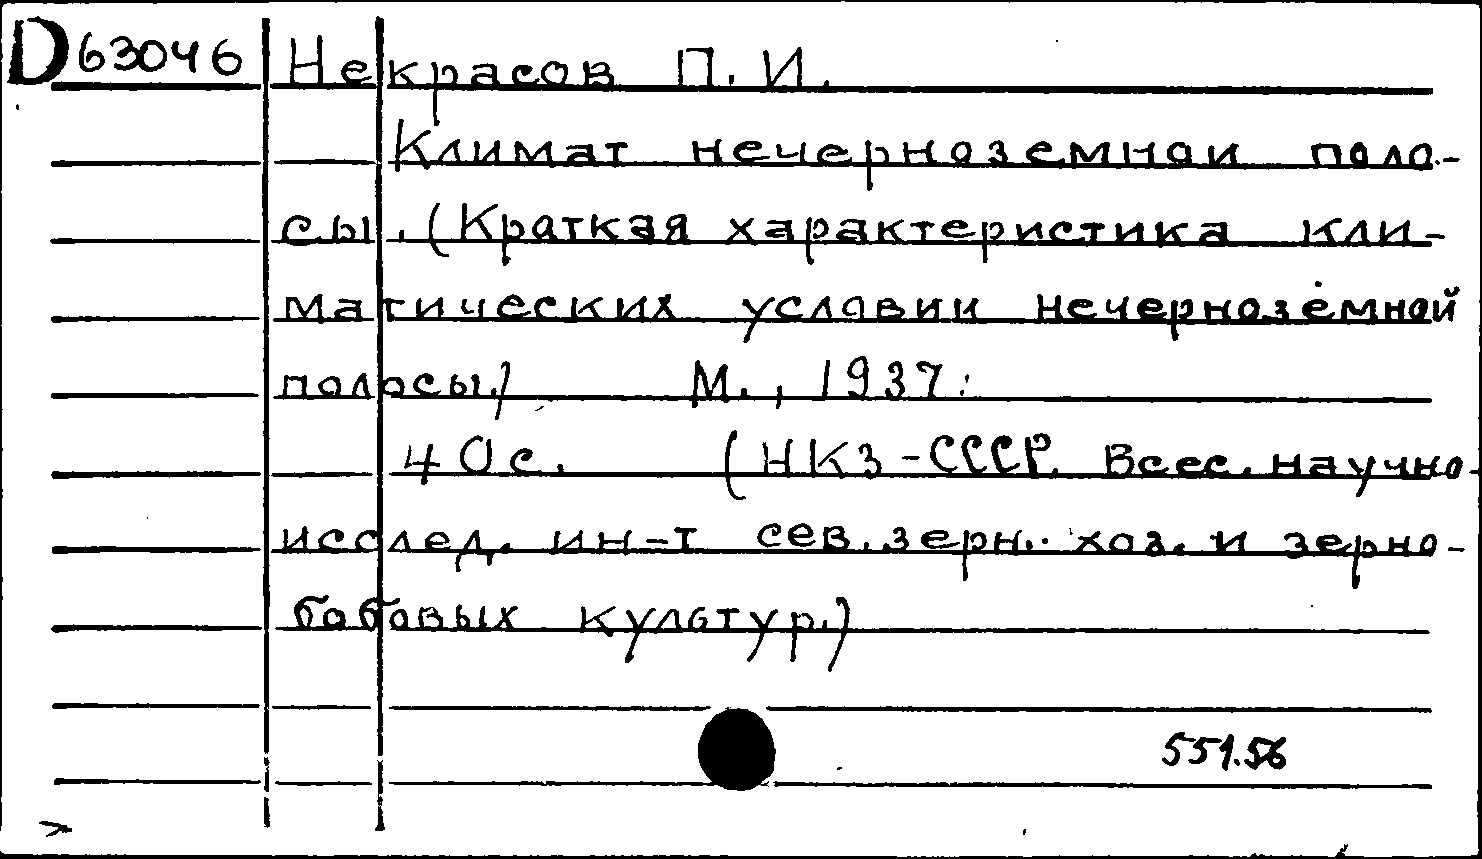 D63046 Некрасов П. И.
Климат нечерноземнои поло-
сы. (Краткая характеристика кли-
матических условии нечерноземной
полосы.) М., 1937.
40с. (НКЗ-СССР. Всес. научно-
исслед. ин-т сев. зерн. хоз. и зерно-
бобовых культур.)
551.56